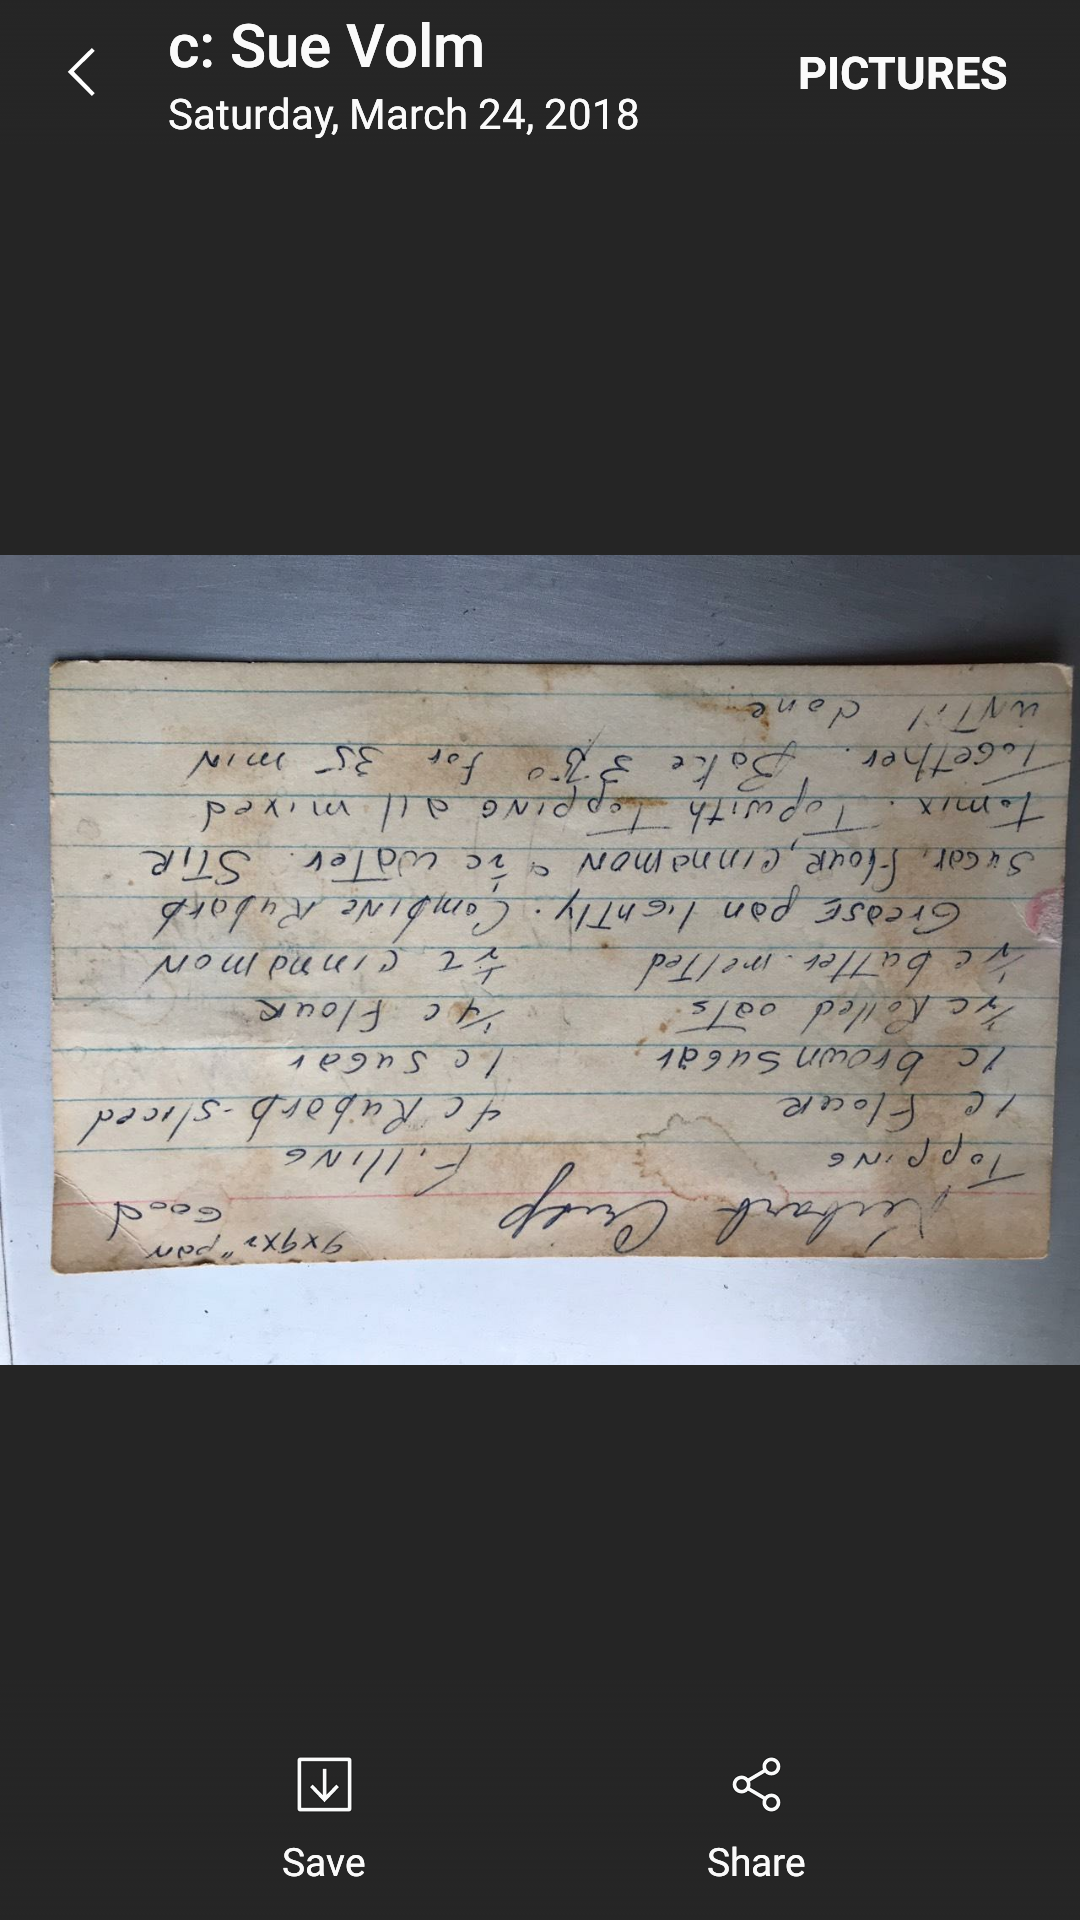 c: Sue Volm
Saturday, March 24, 2018
PICTURES
9x9x2" pan
Rubarb Crisp
Good
Topping Filling
1c Flour 4c Rubarb-sliced
1c brown sugar 1c sugar
1/2c Rolled oats 1/4c Flour
1/2c butter-melted 1/2t cinnamon
Grease pan lightly. Combine Rubarb
Sugar, Flour, Cinnamon & 1/2c water. Stir
to mix. Top with Topping all mixed
Together. Bake 350 for 35 min
until done
Save
Share